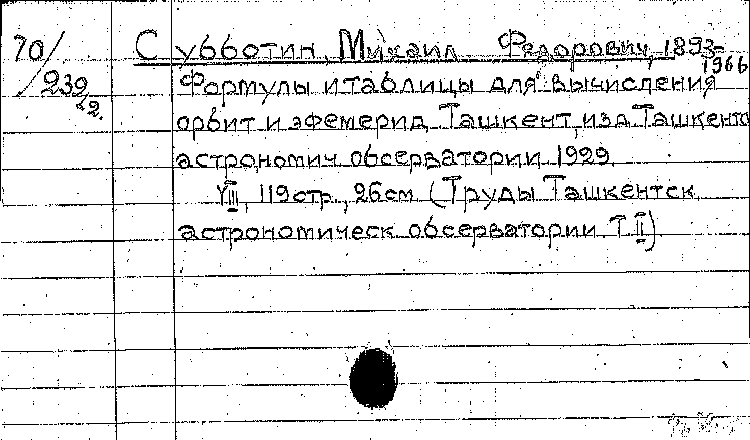 70/
239
22.
Субботин, Михаил Федорович, 1893-
1966
Формулы и таблицы для вычисления
орбит и эфемерид. Ташкент, изд. Ташкентс
астрономич. обсерватории. 1929.
VIII, 119 стр., 26 см (Труды Ташкентск.
астрономическ. обсерватории. Т. II)